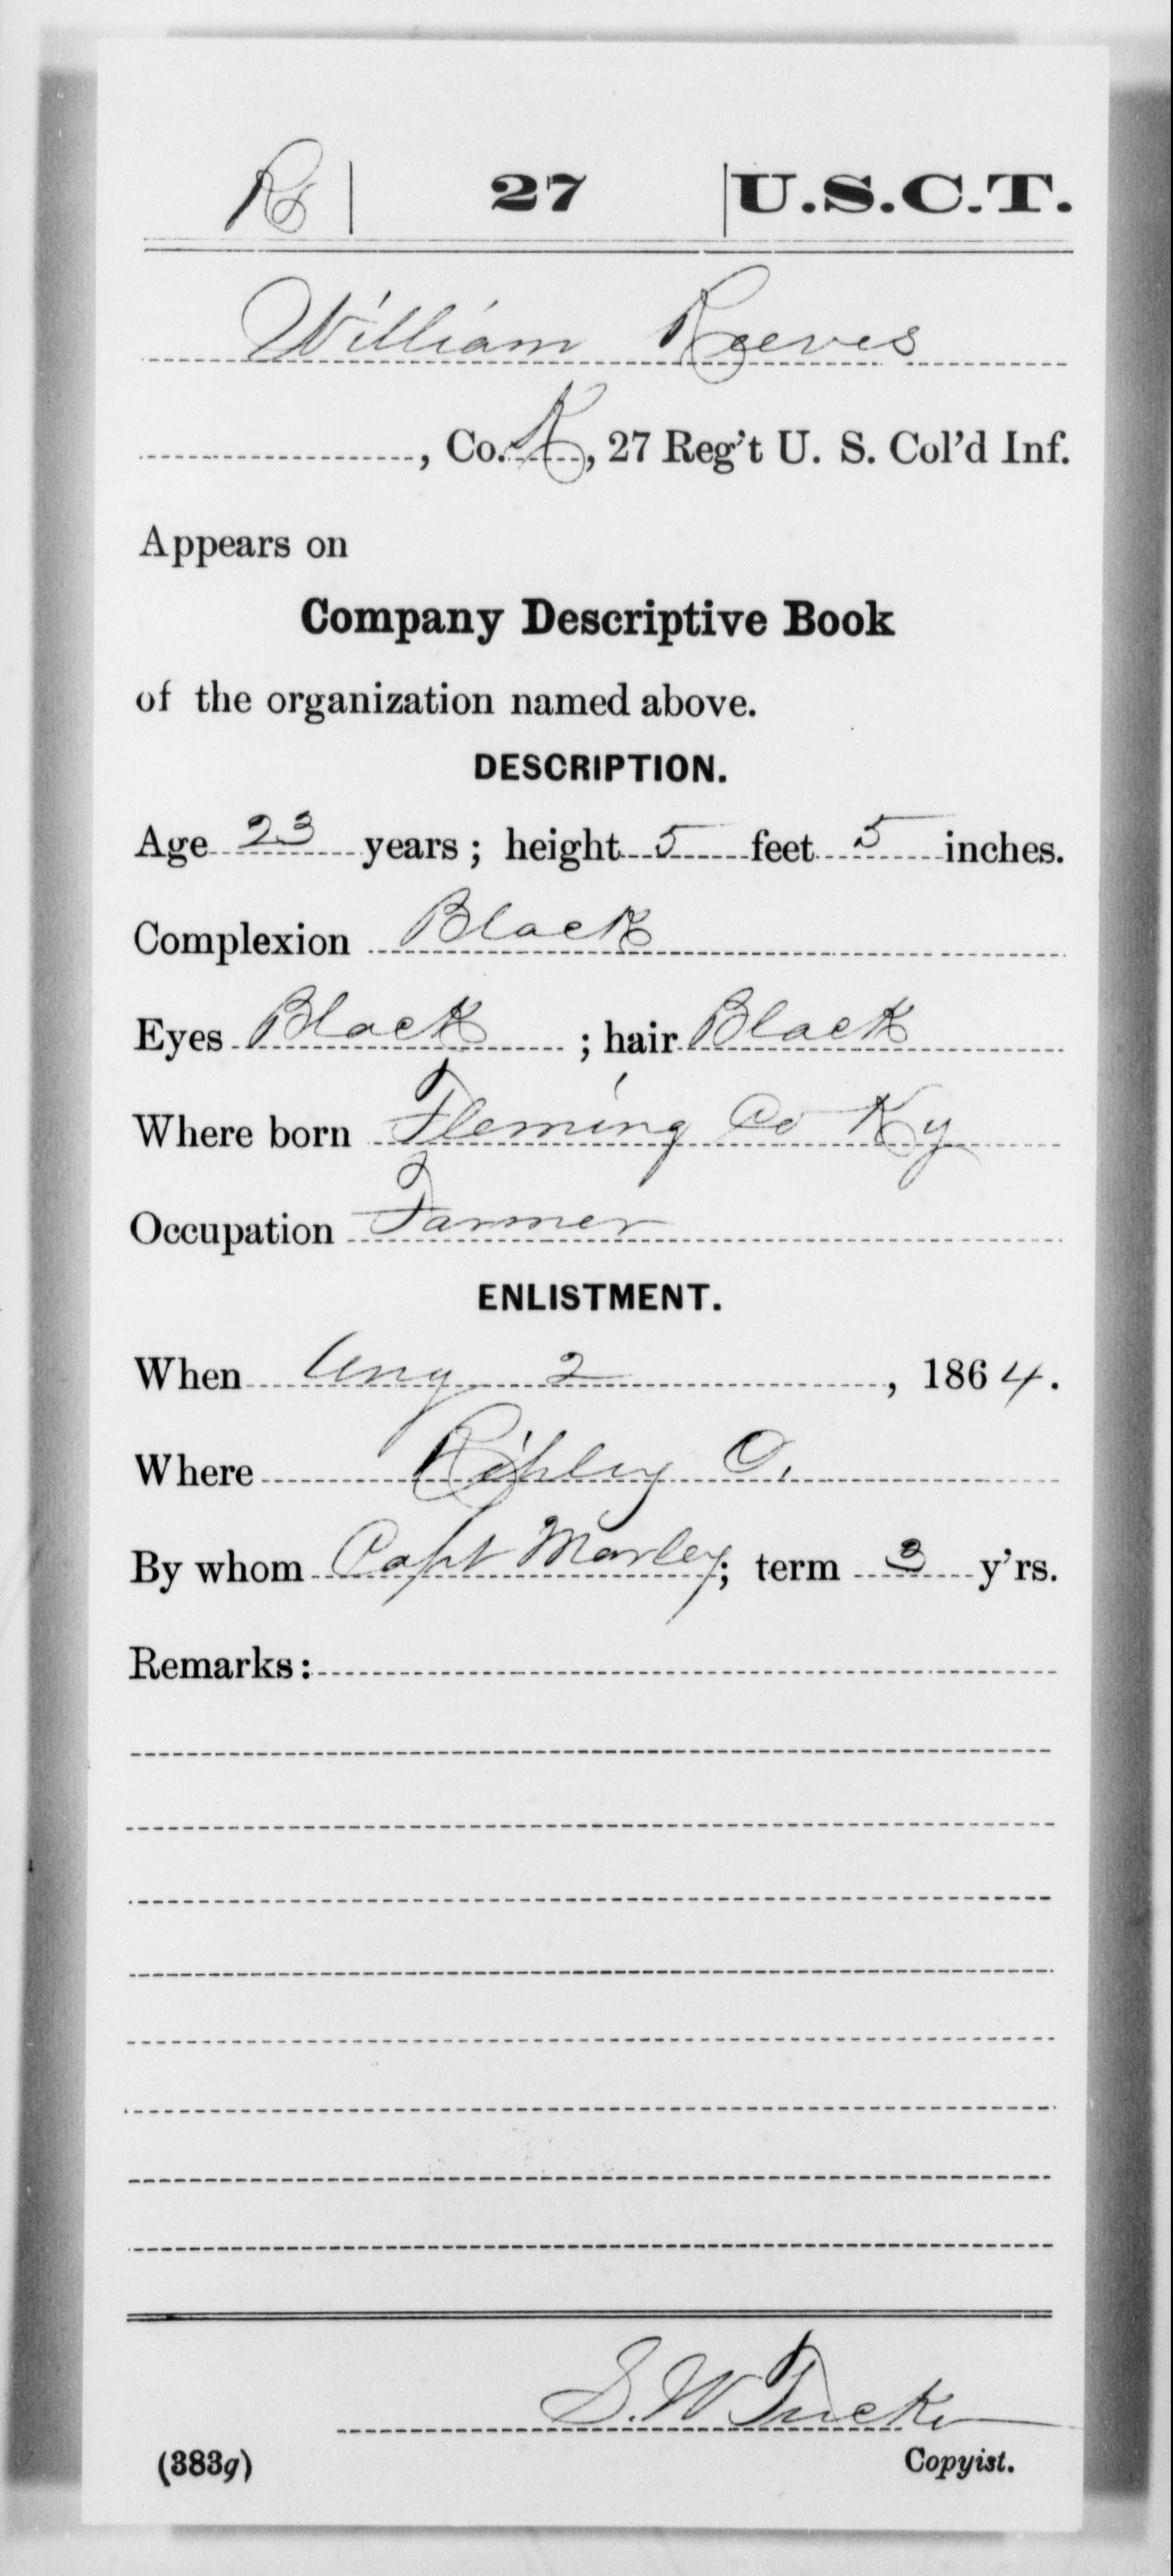 R | 27 | U.S.C.T.
William Reeves
, Co. K, 27 Reg't U. S. Col'd Inf.
Appears on
Company Descriptive Book
of the organization named above.
DESCRIPTION.
Age 23 years; height 5 feet 5 inches.
Complexion Black
Eyes Black ; hair Black
Where born Fleming Co Ky
Occupation Farmer
ENLISTMENT.
When Aug 2, 1864.
Where Ripley O.
By whom Capt Marley; term 3 y'rs.
Remarks:
S. W. Tucker
(383g) Copyist.